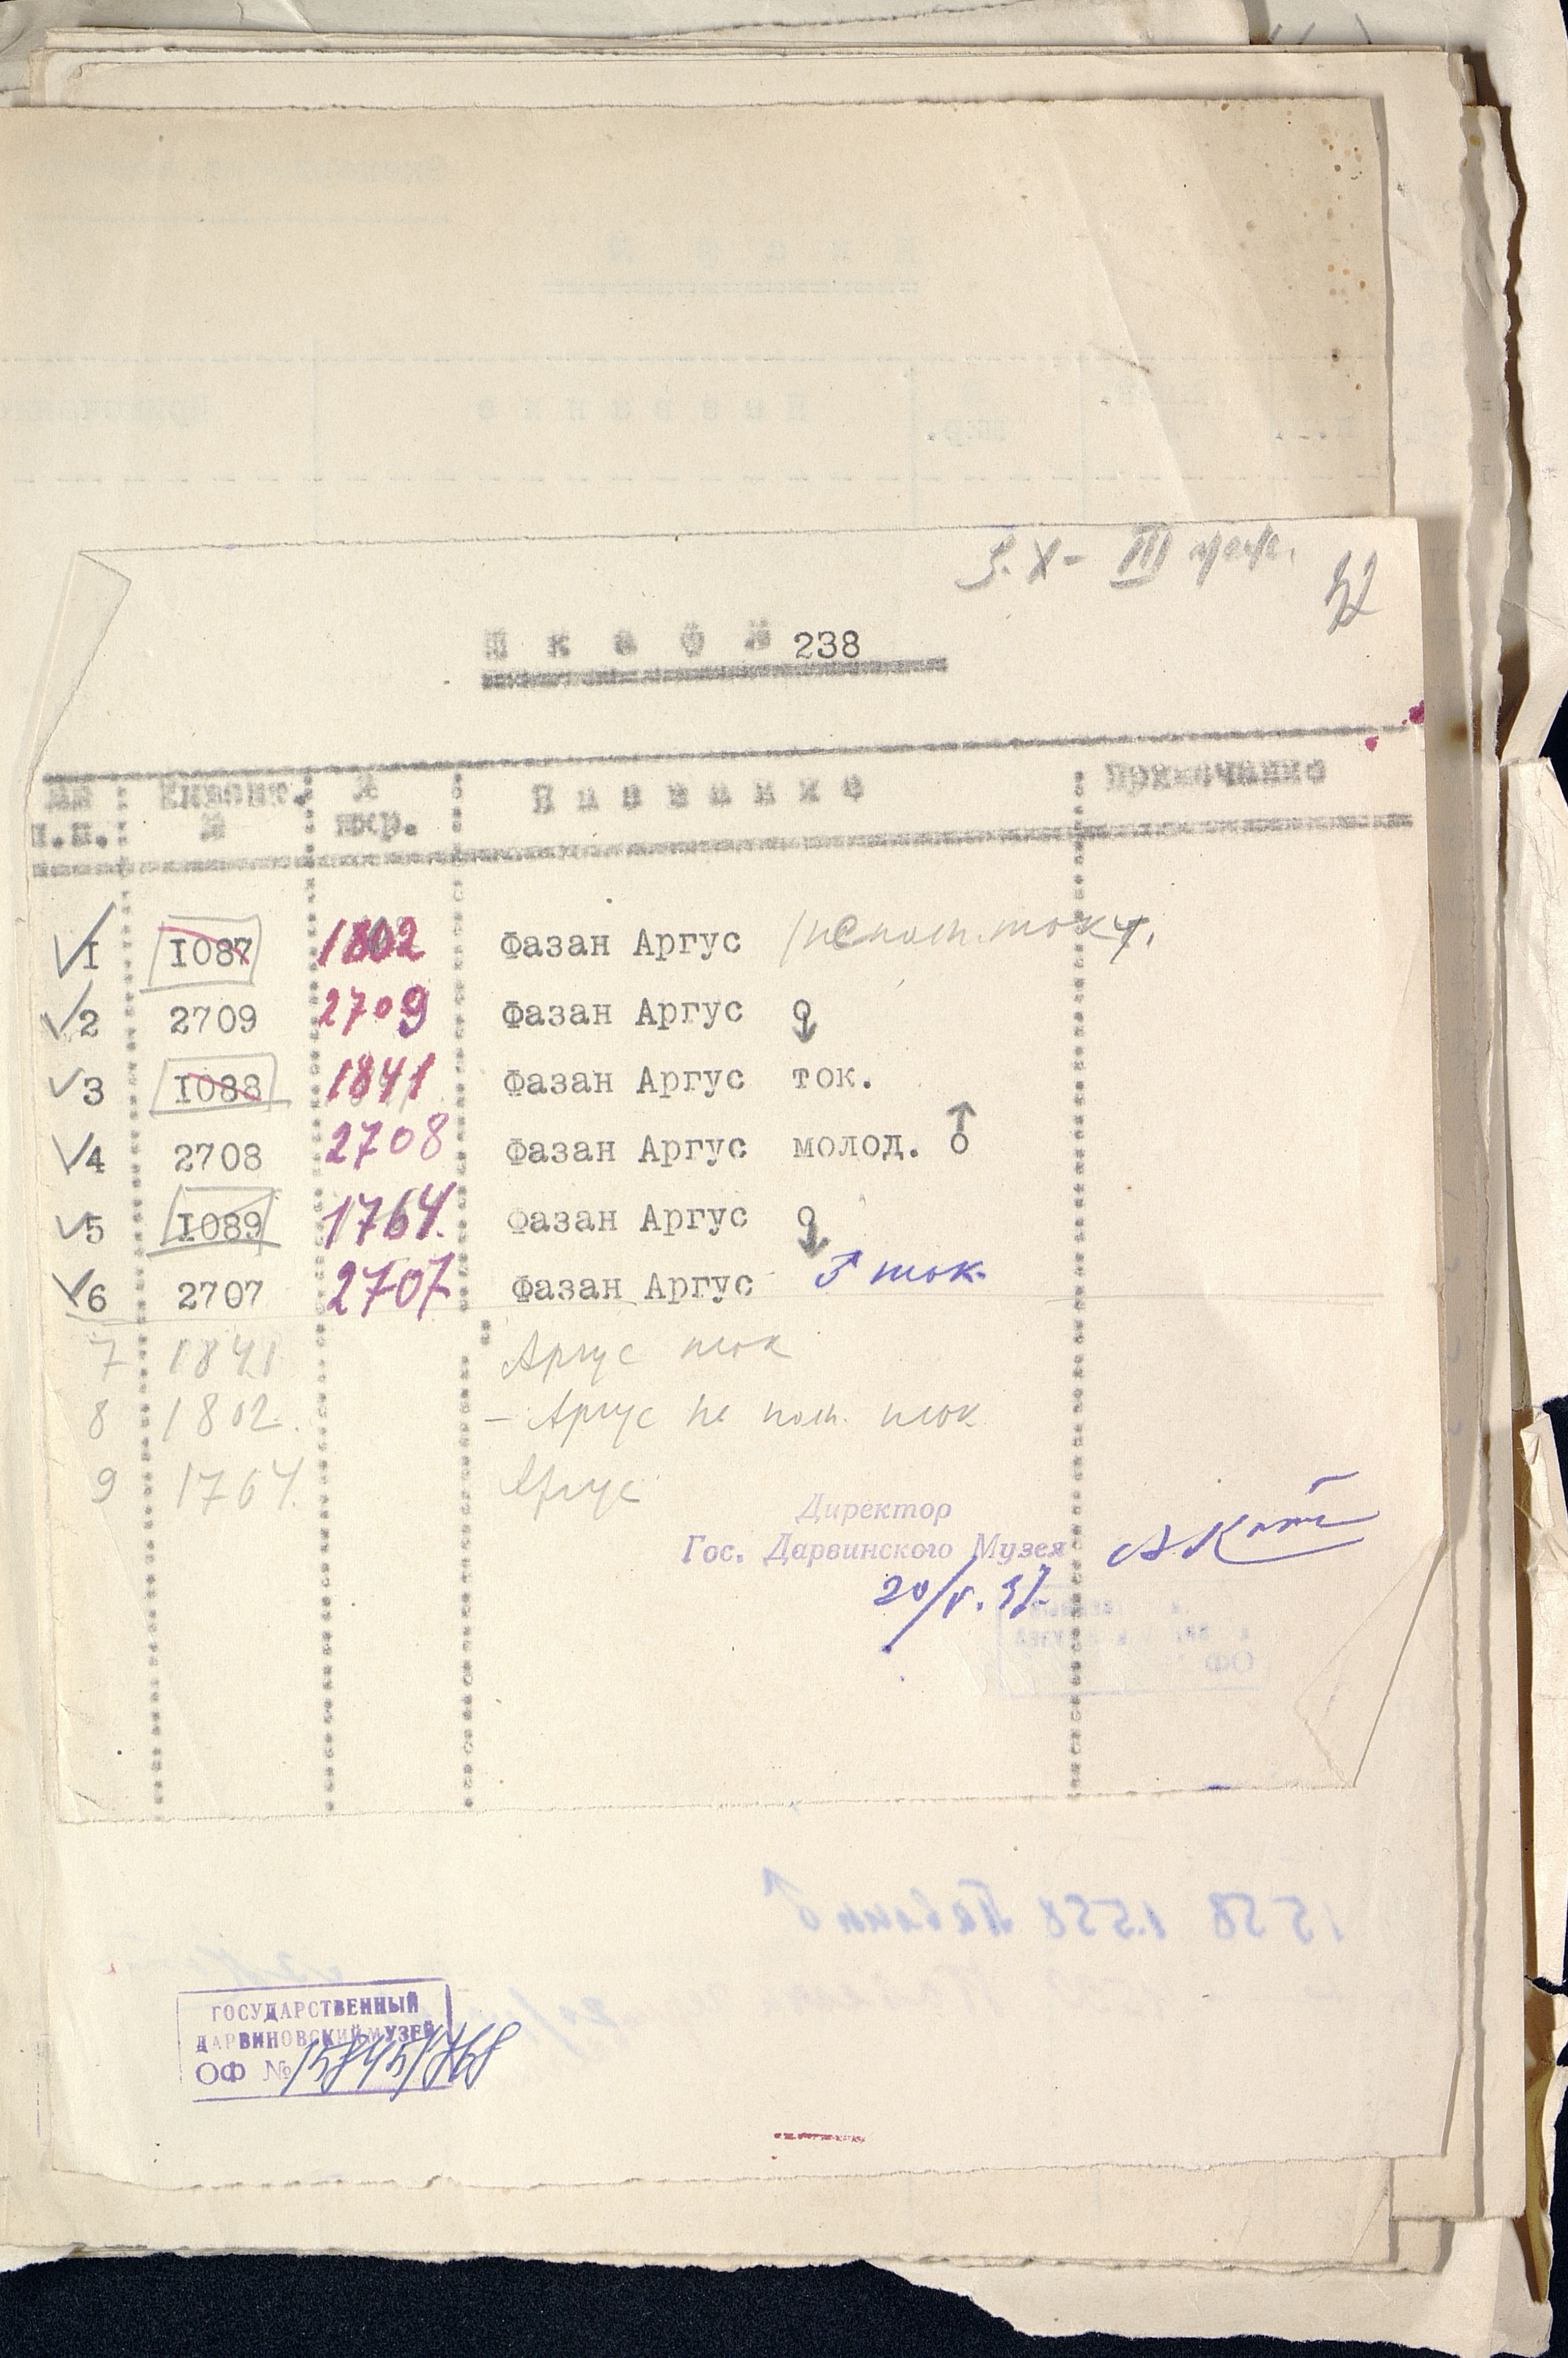 Шкаф № 238
№№ п.п. Инвент. № № шкр. Название Примечание
1 1087 1802 Фазан Аргус /не полн. ток/.
2 2709 2709 Фазан Аргус ♀
3 1088 1841 Фазан Аргус ток.
4 2708 2708 Фазан Аргус молод. ♂
5 1089 1764. Фазан Аргус ♀
6 2707 2707 Фазан Аргус ♂ ток.
7 1841 Аргус ток
8 1802. – Аргус не полн. ток
9 1764. Аргус
Директор
Гос. Дарвинского Музея
20/V. 37.
ГОСУДАРСТВЕННЫЙ
ДАРВИНОВСКИЙ МУЗЕЙ
ОФ №